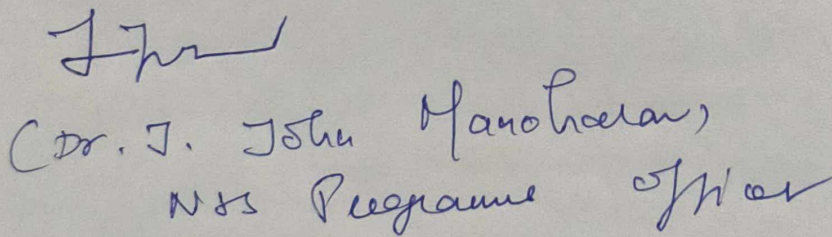 (Dr. J. John Manoharan)
NSS Programme Officer